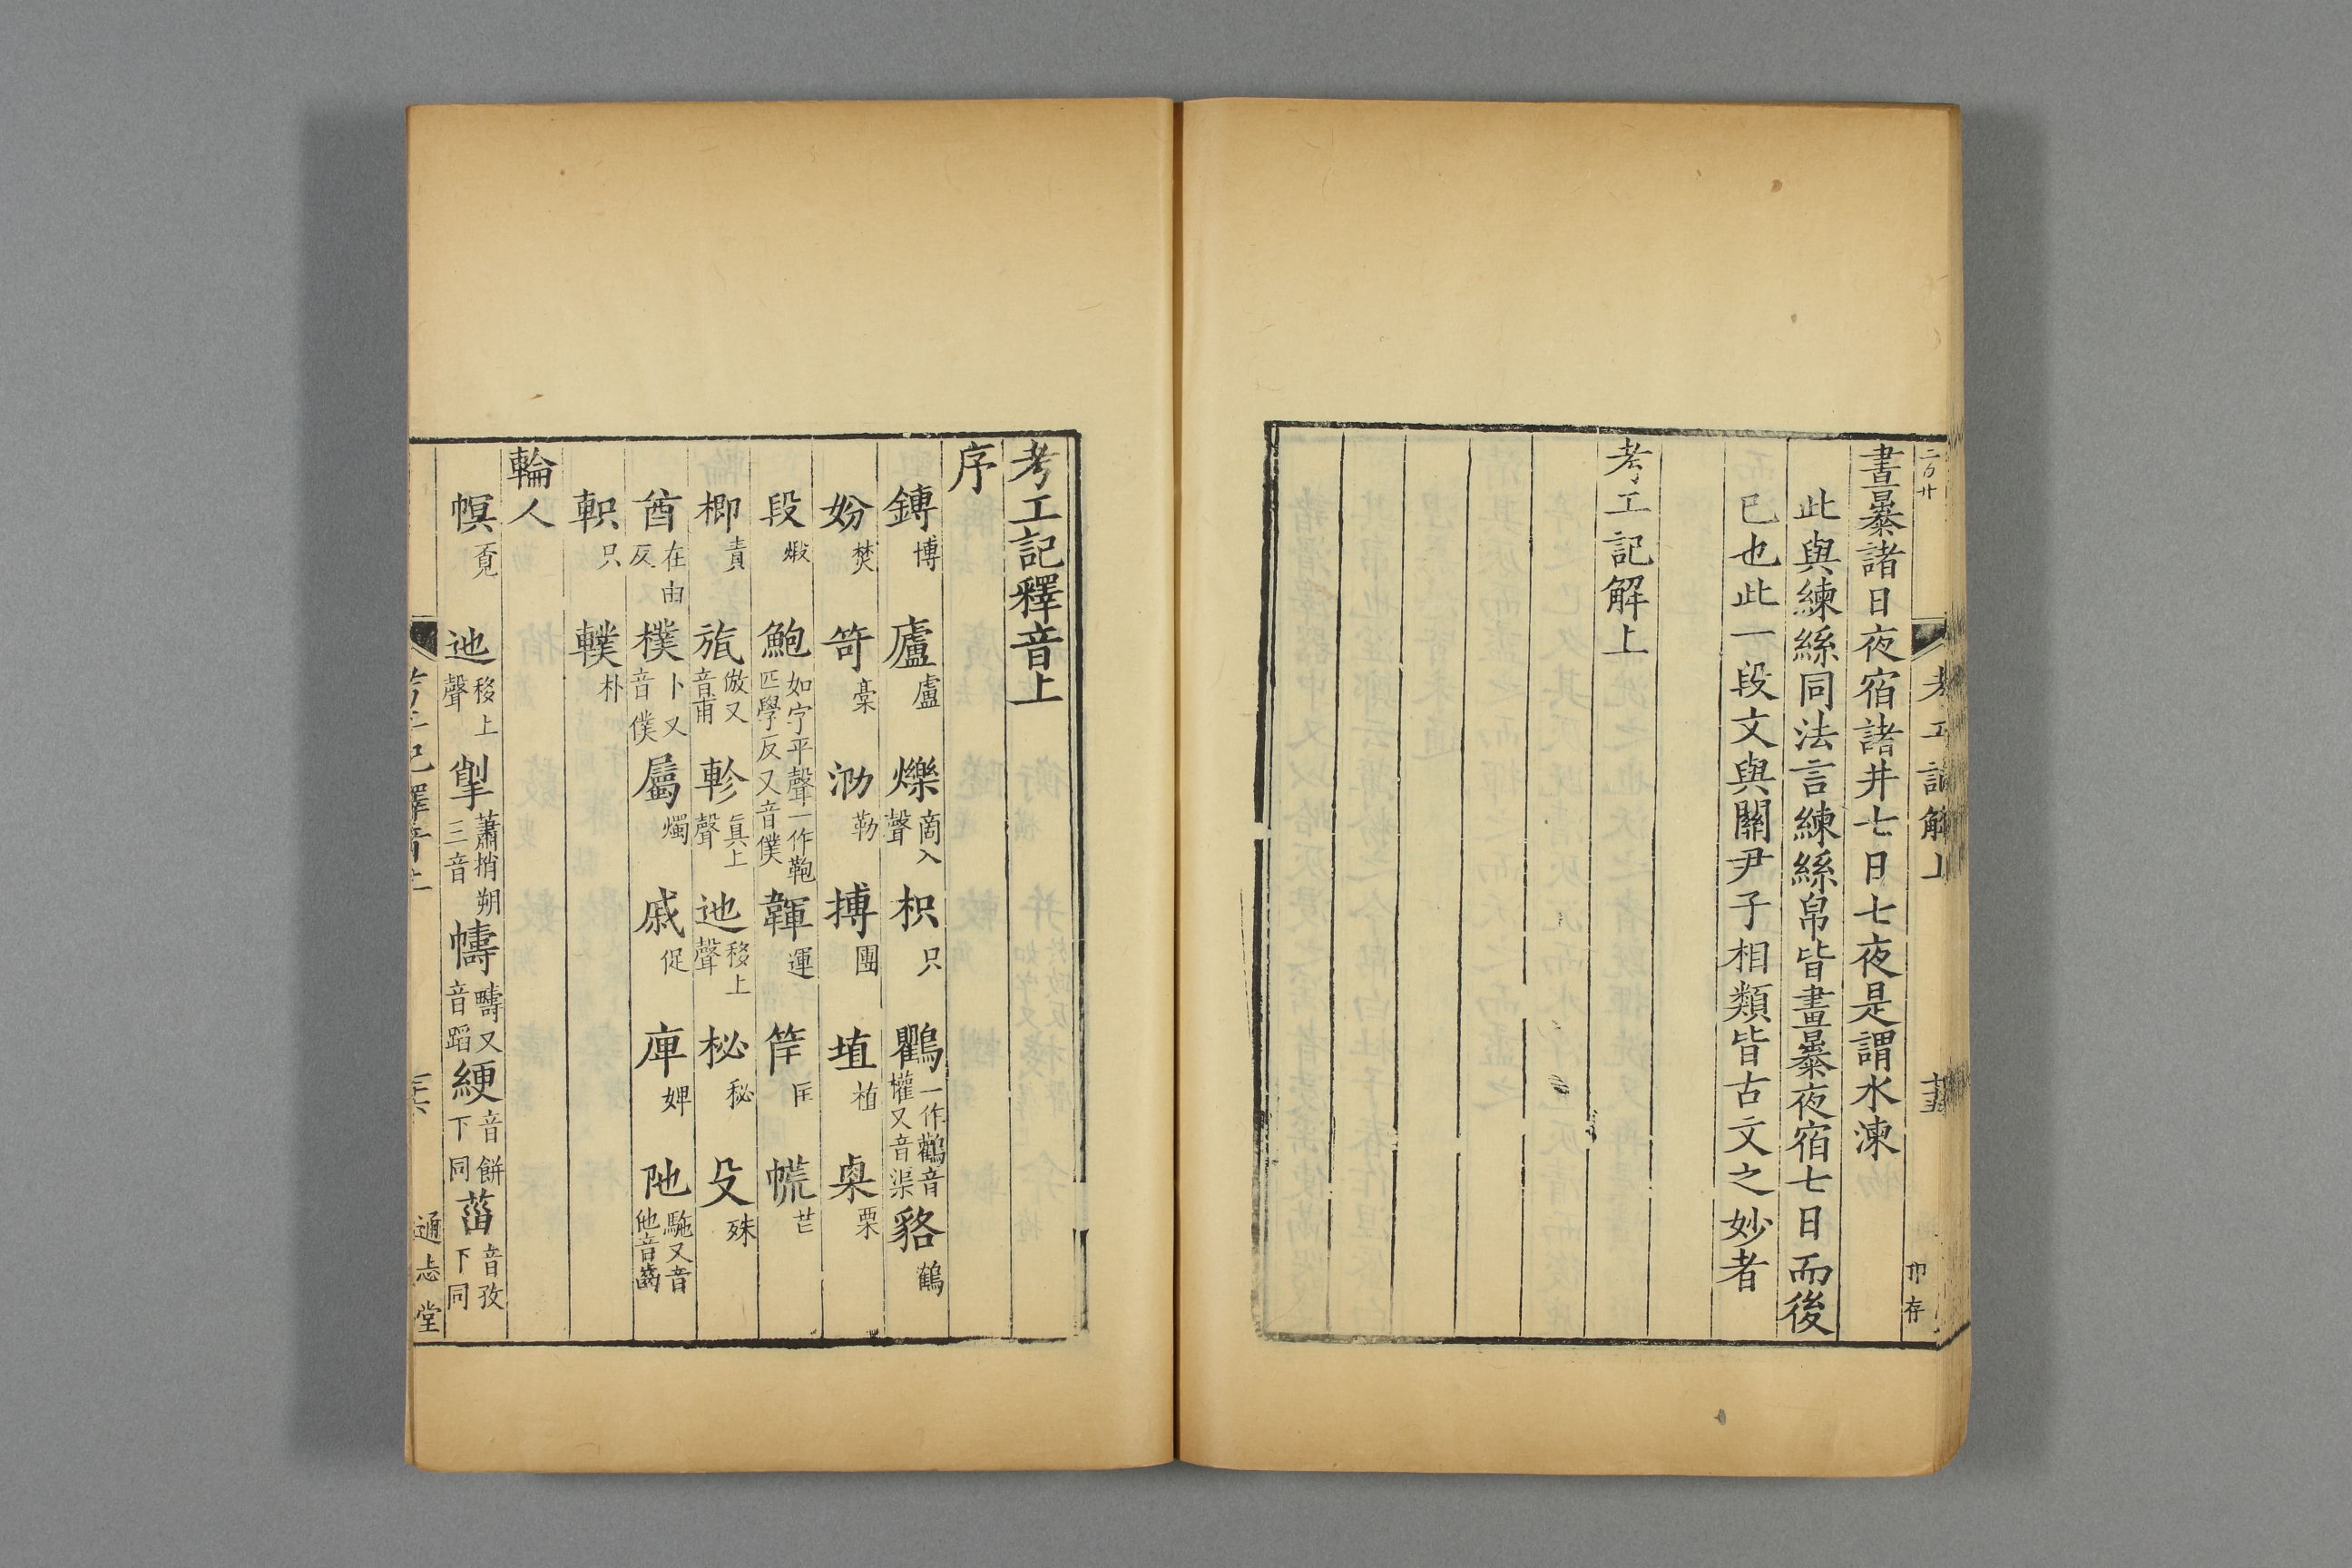 二百廿
考工記解上
卬存
晝暴諸日夜宿諸井七日七夜是謂水湅
此與練絲同法言練絲帛皆晝暴夜宿七日而後
已也此一段文與關尹子相類皆古文之妙者
考工記解上
考工記釋音上
序
鎛博 廬盧 爍商入聲 枳只 鸜一作鸛音權又音渠 貉鶴
妢焚 笴槀 泐勒 摶團 埴植 㮚栗
段煅 鮑如字平聲一作鞄匹學反又音僕 韗運 筐匡 㡛芒
楖責 瓬倣又音甫 軫眞上聲 迆移上聲 柲秘 殳殊
酋在由反 樸卜又音僕 屬燭 戚促 庳婢 阤駞又音他音齒
軹只 轐朴
輪人
幎覓 迆移上聲 掣蕭梢朔三音 幬疇又音蹈 綆音餅下同 菑音孜下同
考工記釋音上
通志堂